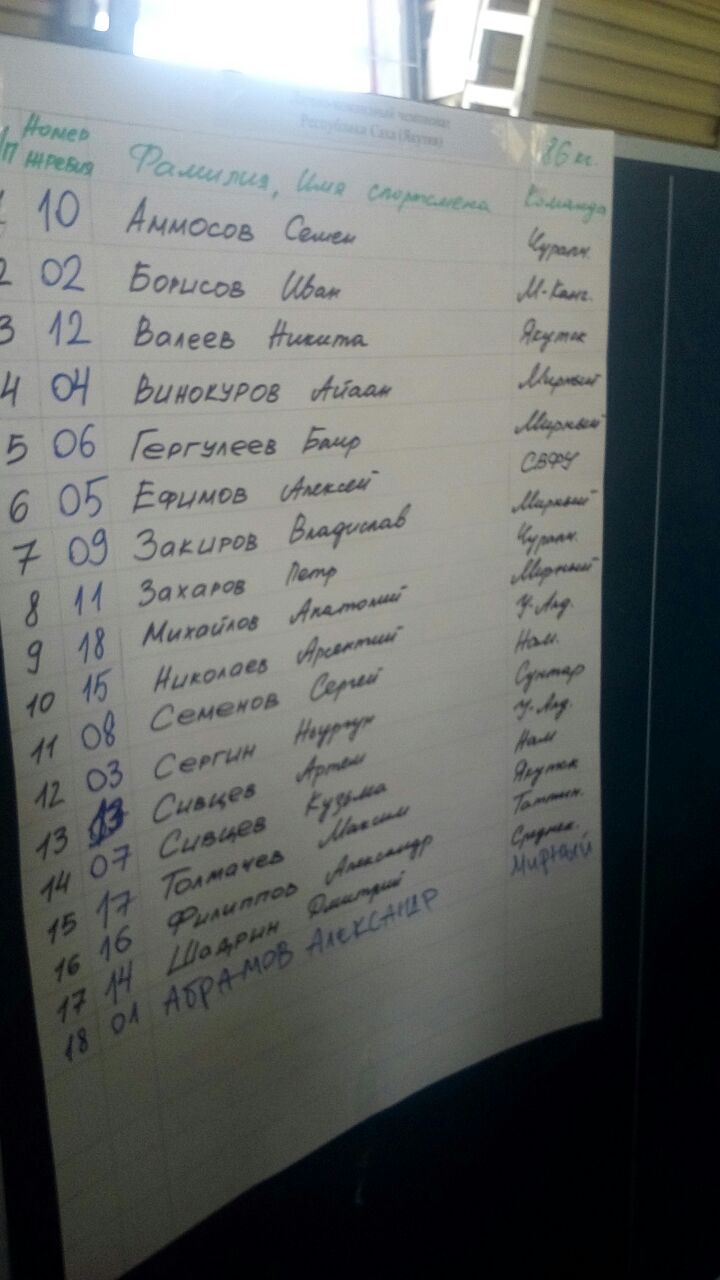 Лично-командный чемпионат
Республики Саха (Якутия)
/п Номер жребия Фамилия, Имя спортсмена Команда 86 кг.
1 10 Аммосов Семен Чурапч.
2 02 Борисов Иван М-Канг.
3 12 Валеев Никита Якутск
4 04 Винокуров Айаан Мирный
5 06 Гергулеев Баир Мирный
6 05 Ефимов Алексей СВФУ
7 09 Закиров Владислав Мирный
8 11 Захаров Петр Чурапч.
9 18 Михайлов Анатолий Мирный
10 15 Николаев Арсентий У-Алд.
11 08 Семенов Сергей Нам.
12 03 Сергин Ньургун Сунтар
13 13 Сивцев Артем У-Алд.
14 07 Сивцев Кузьма Нам
15 17 Толмачев Максим Якутск
16 16 Филиппов Александр Таттин.
17 14 Шадрин Дмитрий Среднек.
18 01 АБРАМОВ АЛЕКСАНДР Мирный